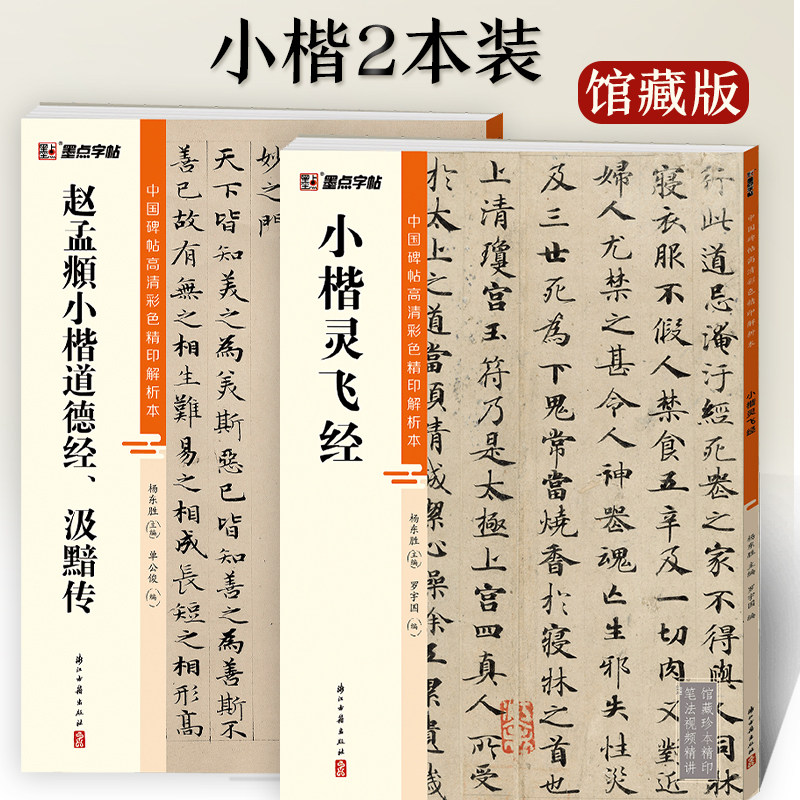 小楷2本装
馆藏版
墨点字帖
赵孟頫小楷道德经、汲黯传
中国碑帖高清彩色精印解析本
杨东胜 主编 单公俊 编
浙江古籍出版社
妙之門
天下皆知美之為美斯惡已皆知善之為善斯不
善已故有無之相生難易之相成長短之相形高
墨点字帖
小楷灵飞经
中国碑帖高清彩色精印解析本
杨东胜 主编 罗宇国 编
浙江古籍出版社
行此道忌淹汙經死喪之家不得與人同牀
寢衣服不假人禁食五辛及一切肉又對近
婦人尤禁之甚令人神喪魂亡生邪失性災
及三世死為下鬼常當燒香於寢牀之首也
上清瓊宮玉符乃是太極上宮四真人所受
於太上之道當須精誠潔心澡除五累遺穢
馆藏珍本精印
笔法视频精讲
中国碑帖高清彩色精印解析本
小楷灵飞经
杨东胜 主编 罗宇国 编
浙江古籍出版社